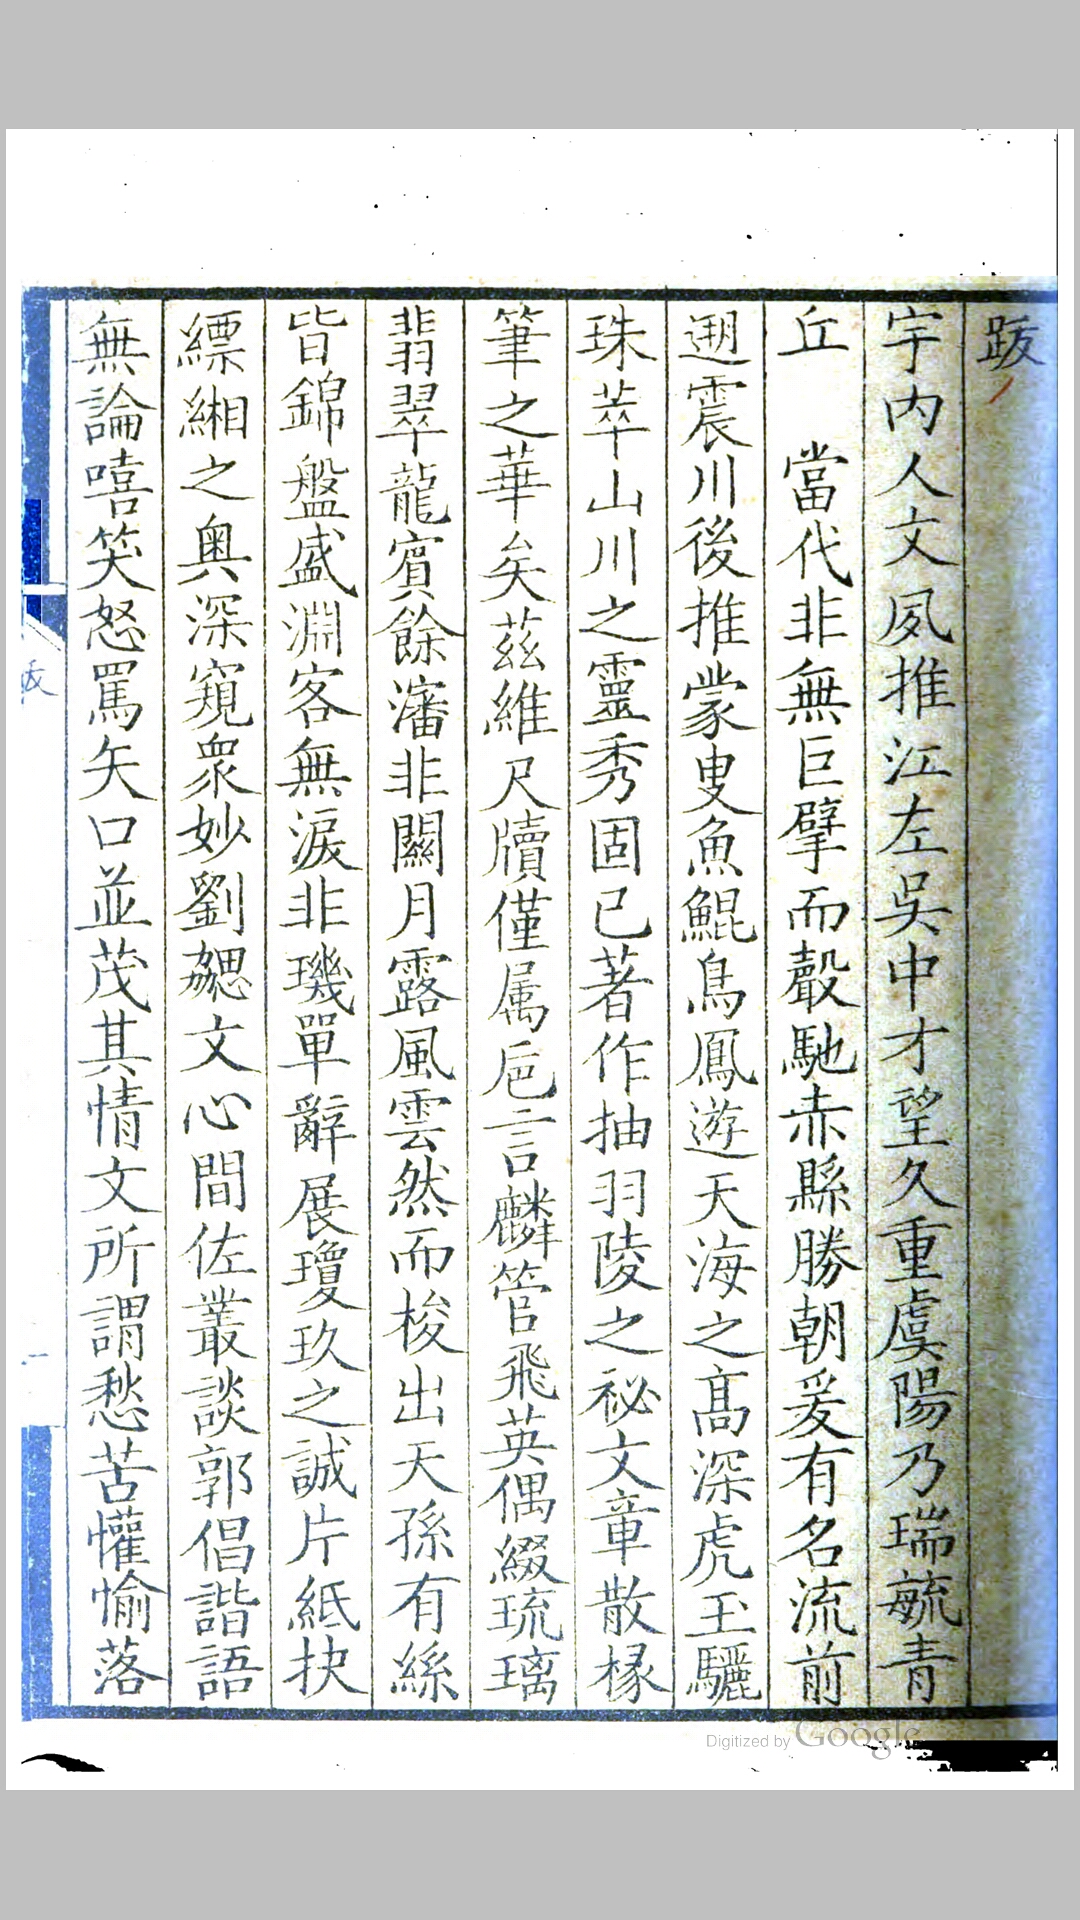 跋
宇内人文夙推江左吳中才望久重虞陽乃瑞毓青
丘　當代非無巨擘而聲馳赤縣勝朝爰有名流前
遡震川後推蒙叟魚鯤鳥鳳遊天海之髙深虎玉驪
珠萃山川之靈秀固已著作抽羽陵之祕文章散椽
筆之華矣茲維尺牘僅属巵言麟管飛英偶綴琉璃
翡翠龍賓餘瀋非關月露風雲然而梭出天孫有絲
皆錦盤盛淵客無淚非璣單辭展瓊玖之誠片紙抉
縹緗之奥深窺衆妙劉勰文心間佐叢談郭倡諧語
無論嘻笑怒罵矢口並茂其情文所謂愁苦懽愉落
跋
一
Digitized by Google